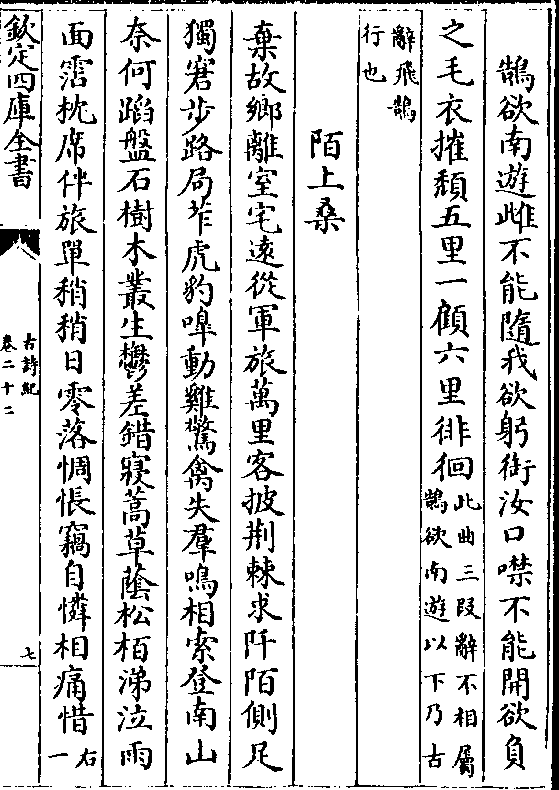 鵠欲南遊雌不能隨我欲躬銜汝口噤不能開欲負
之毛衣摧頹五里一顧六里徘徊此曲三段辭不相屬
鵠欲南遊以下乃古
辭飛鵠
行也
陌上桑
棄故鄉離室宅遠從軍旅萬里客披荆棘求阡陌側足
獨窘步路局苲虎豹嘷動雞驚禽失羣鳴相索登南山
奈何蹈盤石樹木叢生鬱差錯寢蒿草蔭松栢涕泣雨
面霑枕席伴旅單稍稍日零落惆悵竊自憐相痛惜右
一
欽定四庫全書
古詩紀
卷二十二
七